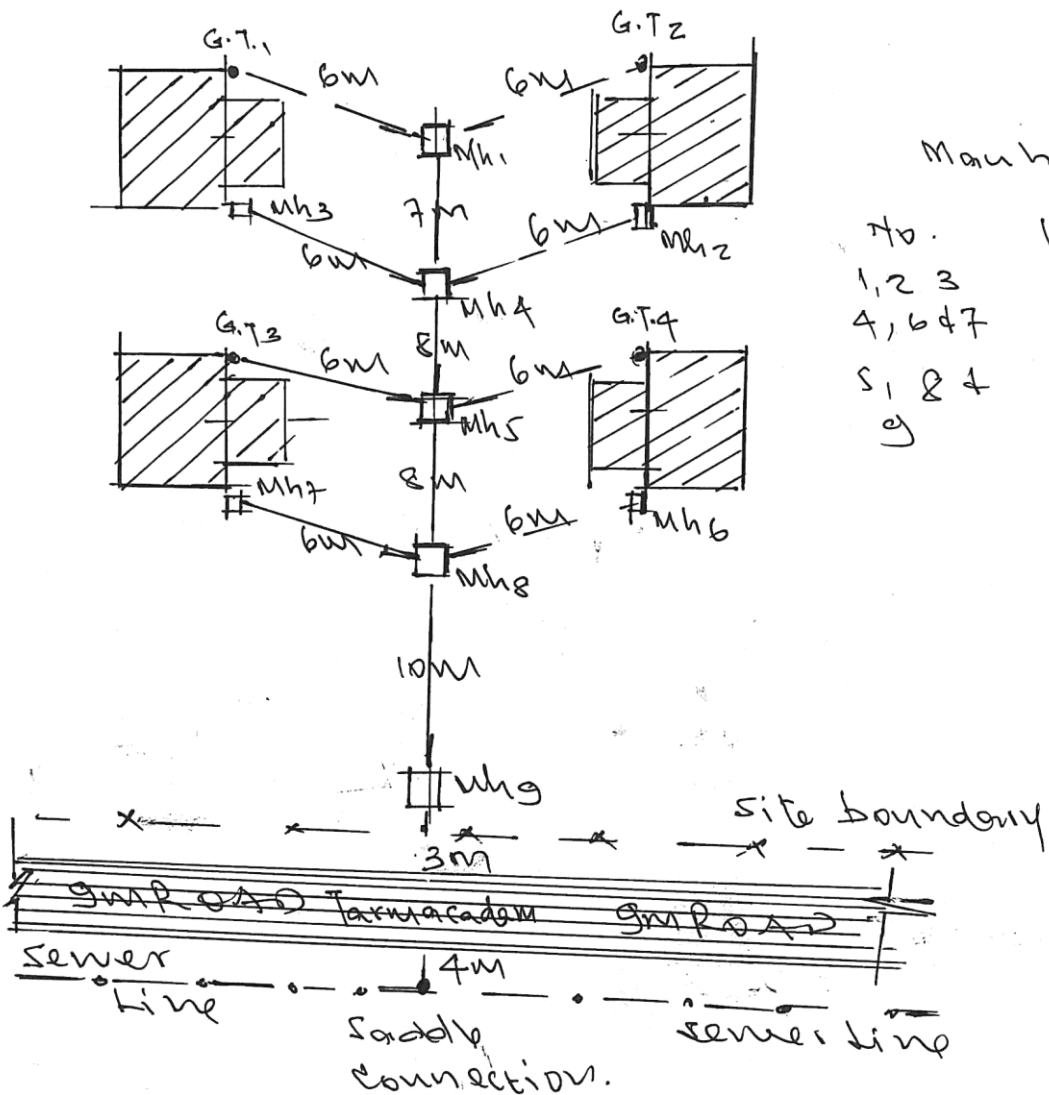 G.T.1
G.T2
6m
6m
Mh1
7m
Mh3
Mh2
6m
6m
Mh4
G.T3
G.T.4
8m
6m
6m
Mh5
8m
Mh7
Mh6
6m
6m
Mh8
10m
Mh9
site boundary
3m
9m ROAD Tarmacadam 9m ROAD
sewer
Line
4m
Saddle
connection.
sewer Line
No.
1, 2 3
4, 6 & 7
5, 8 &
9